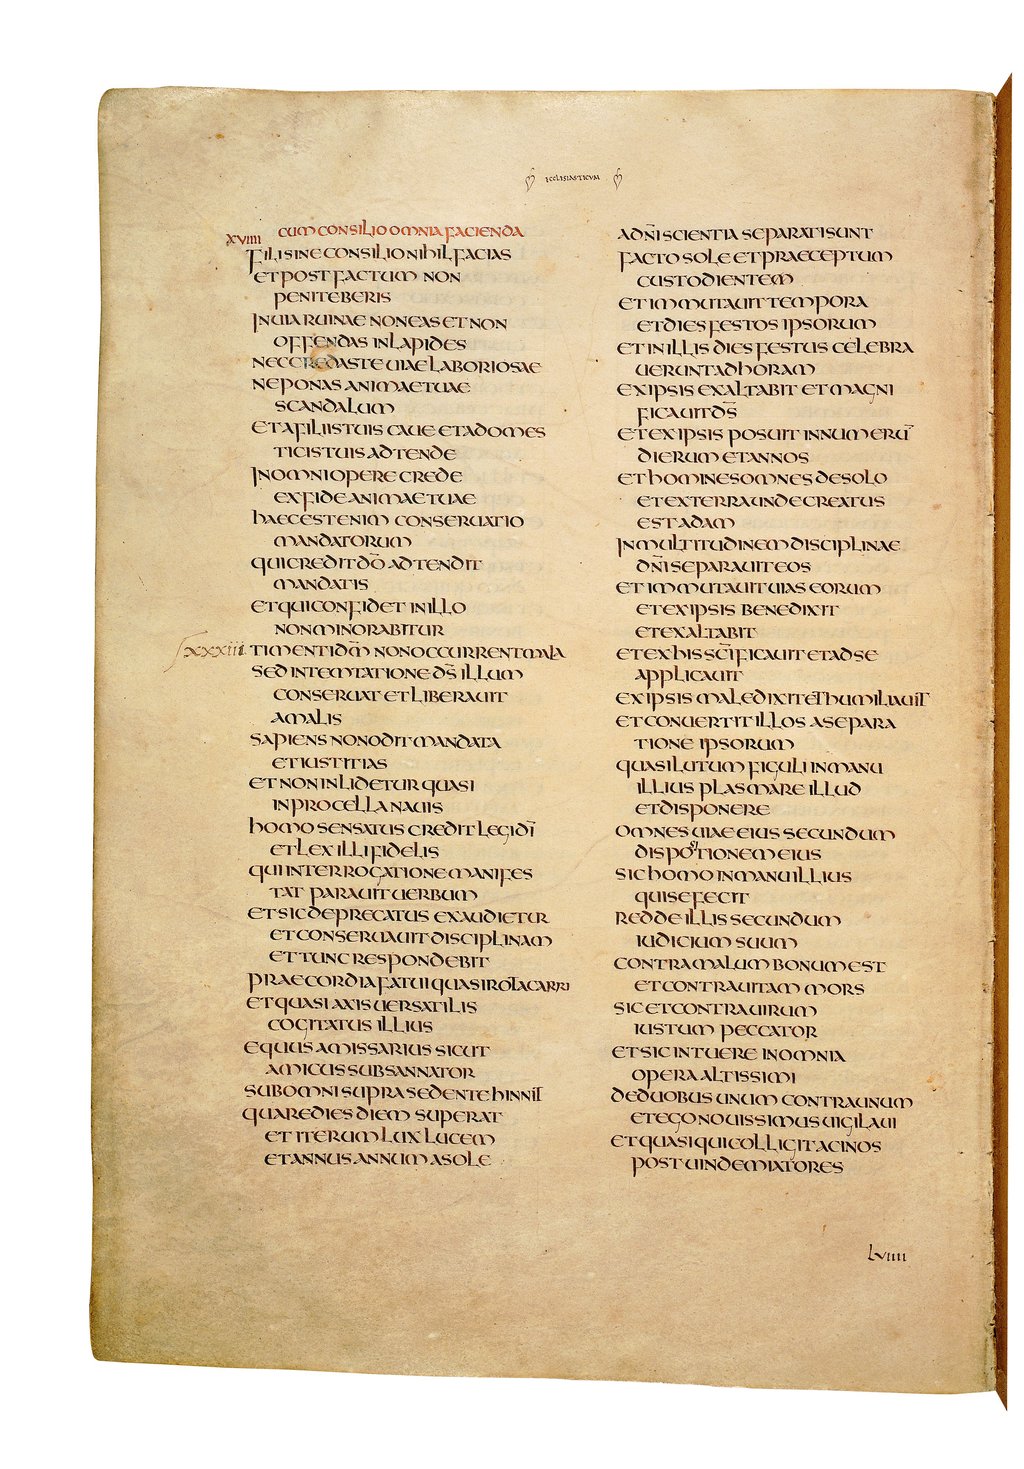 ECCLESIASTICUM
CUM CONSILIO OMNIA FACIENDA
XVIIII
FILI SINE CONSILIO NIHIL FACIAS
ET POST FACTUM NON
PENITEBERIS
IN UIA RUINAE NON EAS ET NON
OFFENDAS IN LAPIDES
NEC CREDAS TE UIAE LABORIOSAE
NE PONAS ANIMAE TUAE
SCANDALUM
ET A FILIIS TUIS CAUE ET A DOMES
TICIS TUIS ADTENDE
IN OMNI OPERE CREDE
EX FIDE ANIMAE TUAE
HAEC EST ENIM CONSERUATIO
MANDATORUM
QUI CREDIT DŌ ADTENDIT
MANDATIS
ET QUI CONFIDET IN ILLO
NON MINORABITUR
XXXIII TIMENTI DM̄ NON OCCURRENT MALA
SED IN TEMTATIONE DS̄ ILLUM
CONSERUAT ET LIBERAUIT
A MALIS
SAPIENS NON ODIT MANDATA
ET IUSTITIAS
ET NON INLIDETUR QUASI
IN PROCELLA NAUIS
HOMO SENSATUS CREDIT LEGI DĪ
ET LEX ILLI FIDELIS
QUI INTERROGATIONE MANIFES
TAT PARAUIT UERBUM
ET SIC DEPRECATUS EXAUDIETUR
ET CONSERUAUIT DISCIPLINAM
ET TUNC RESPONDEBIT
PRAECORDIA FATUI QUASI ROTA CARRI
ET QUASI AXIS UERSATILIS
COGITATUS ILLIUS
EQUUS AMISSARIUS SICUT
AMICUS SUBSANNATOR
SUB OMNI SUPRASEDENTE HINNIT
QUARE DIES DIEM SUPERAT
ET ITERUM LUX LUCEM
ET ANNUS ANNUM A SOLE
A DN̄I SCIENTIA SEPARATI SUNT
FACTO SOLE ET PRAECEPTUM
CUSTODIENTEM
ET IMMUTAUIT TEMPORA
ET DIES FESTOS IPSORUM
ET IN ILLIS DIES FESTUS CELEBRA
UERUNT AD HORAM
EX IPSIS EXALTABIT ET MAGNI
FICAUIT DS̄
ET EX IPSIS POSUIT IN NUMERŪ
DIERUM ET ANNOS
ET HOMINES OMNES DE SOLO
ET EX TERRA UNDE CREATUS
EST ADAM
IN MULTITUDINEM DISCIPLINAE
DN̄I SEPARAUIT EOS
ET IMMUTAUIT UIAS EORUM
ET EX IPSIS BENEDIXIT
ET EXALTABIT
ET EX HIS SCĪFICAUIT ET AD SE
APPLICAUIT
EX IPSIS MALEDIXIT ET HUMILIAUIT
ET CONUERTIT ILLOS A SEPARA
TIONE IPSORUM
QUASI LUTUM FIGULI IN MANU
ILLIUS PLASMARE ILLUD
ET DISPONERE
OMNES UIAE EIUS SECUNDUM
DISPOSITIONEM EIUS
SIC HOMO IN MANU ILLIUS
QUI SE FECIT
REDDE ILLIS SECUNDUM
IUDICIUM SUUM
CONTRA MALUM BONUM EST
ET CONTRA UITAM MORS
SIC ET CONTRA UIRUM
IUSTUM PECCATOR
ET SIC INTUERE IN OMNIA
OPERA ALTISSIMI
DE DUOBUS UNUM CONTRA UNUM
ET EGO NOUISSIMUS UIGILAUI
ET QUASI QUI COLLIGIT ACINOS
POST UINDEMIATORES
LVIIII